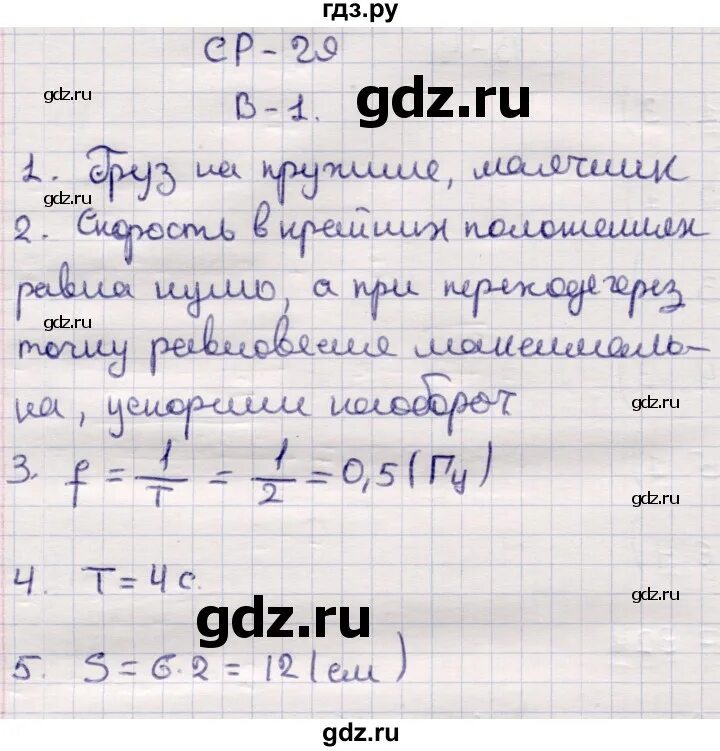 гдз.ру
СР-29
gdz.ru
gdz.ru
В-1.
1. Груз на пружине, маятник
gdz.ru
2. Скорость в крайних положениях
равна нулю, а при переходе через
gdz.ru
точку равновесие максималь-
на, ускорении наоборот
gdz.ru
3. f = 1/T = 1/2 = 0,5 (Гц)
gdz.ru
4. T = 4 с.
gdz.ru
gdz.ru
5. S = 6·2 = 12 (см)
gdz.ru